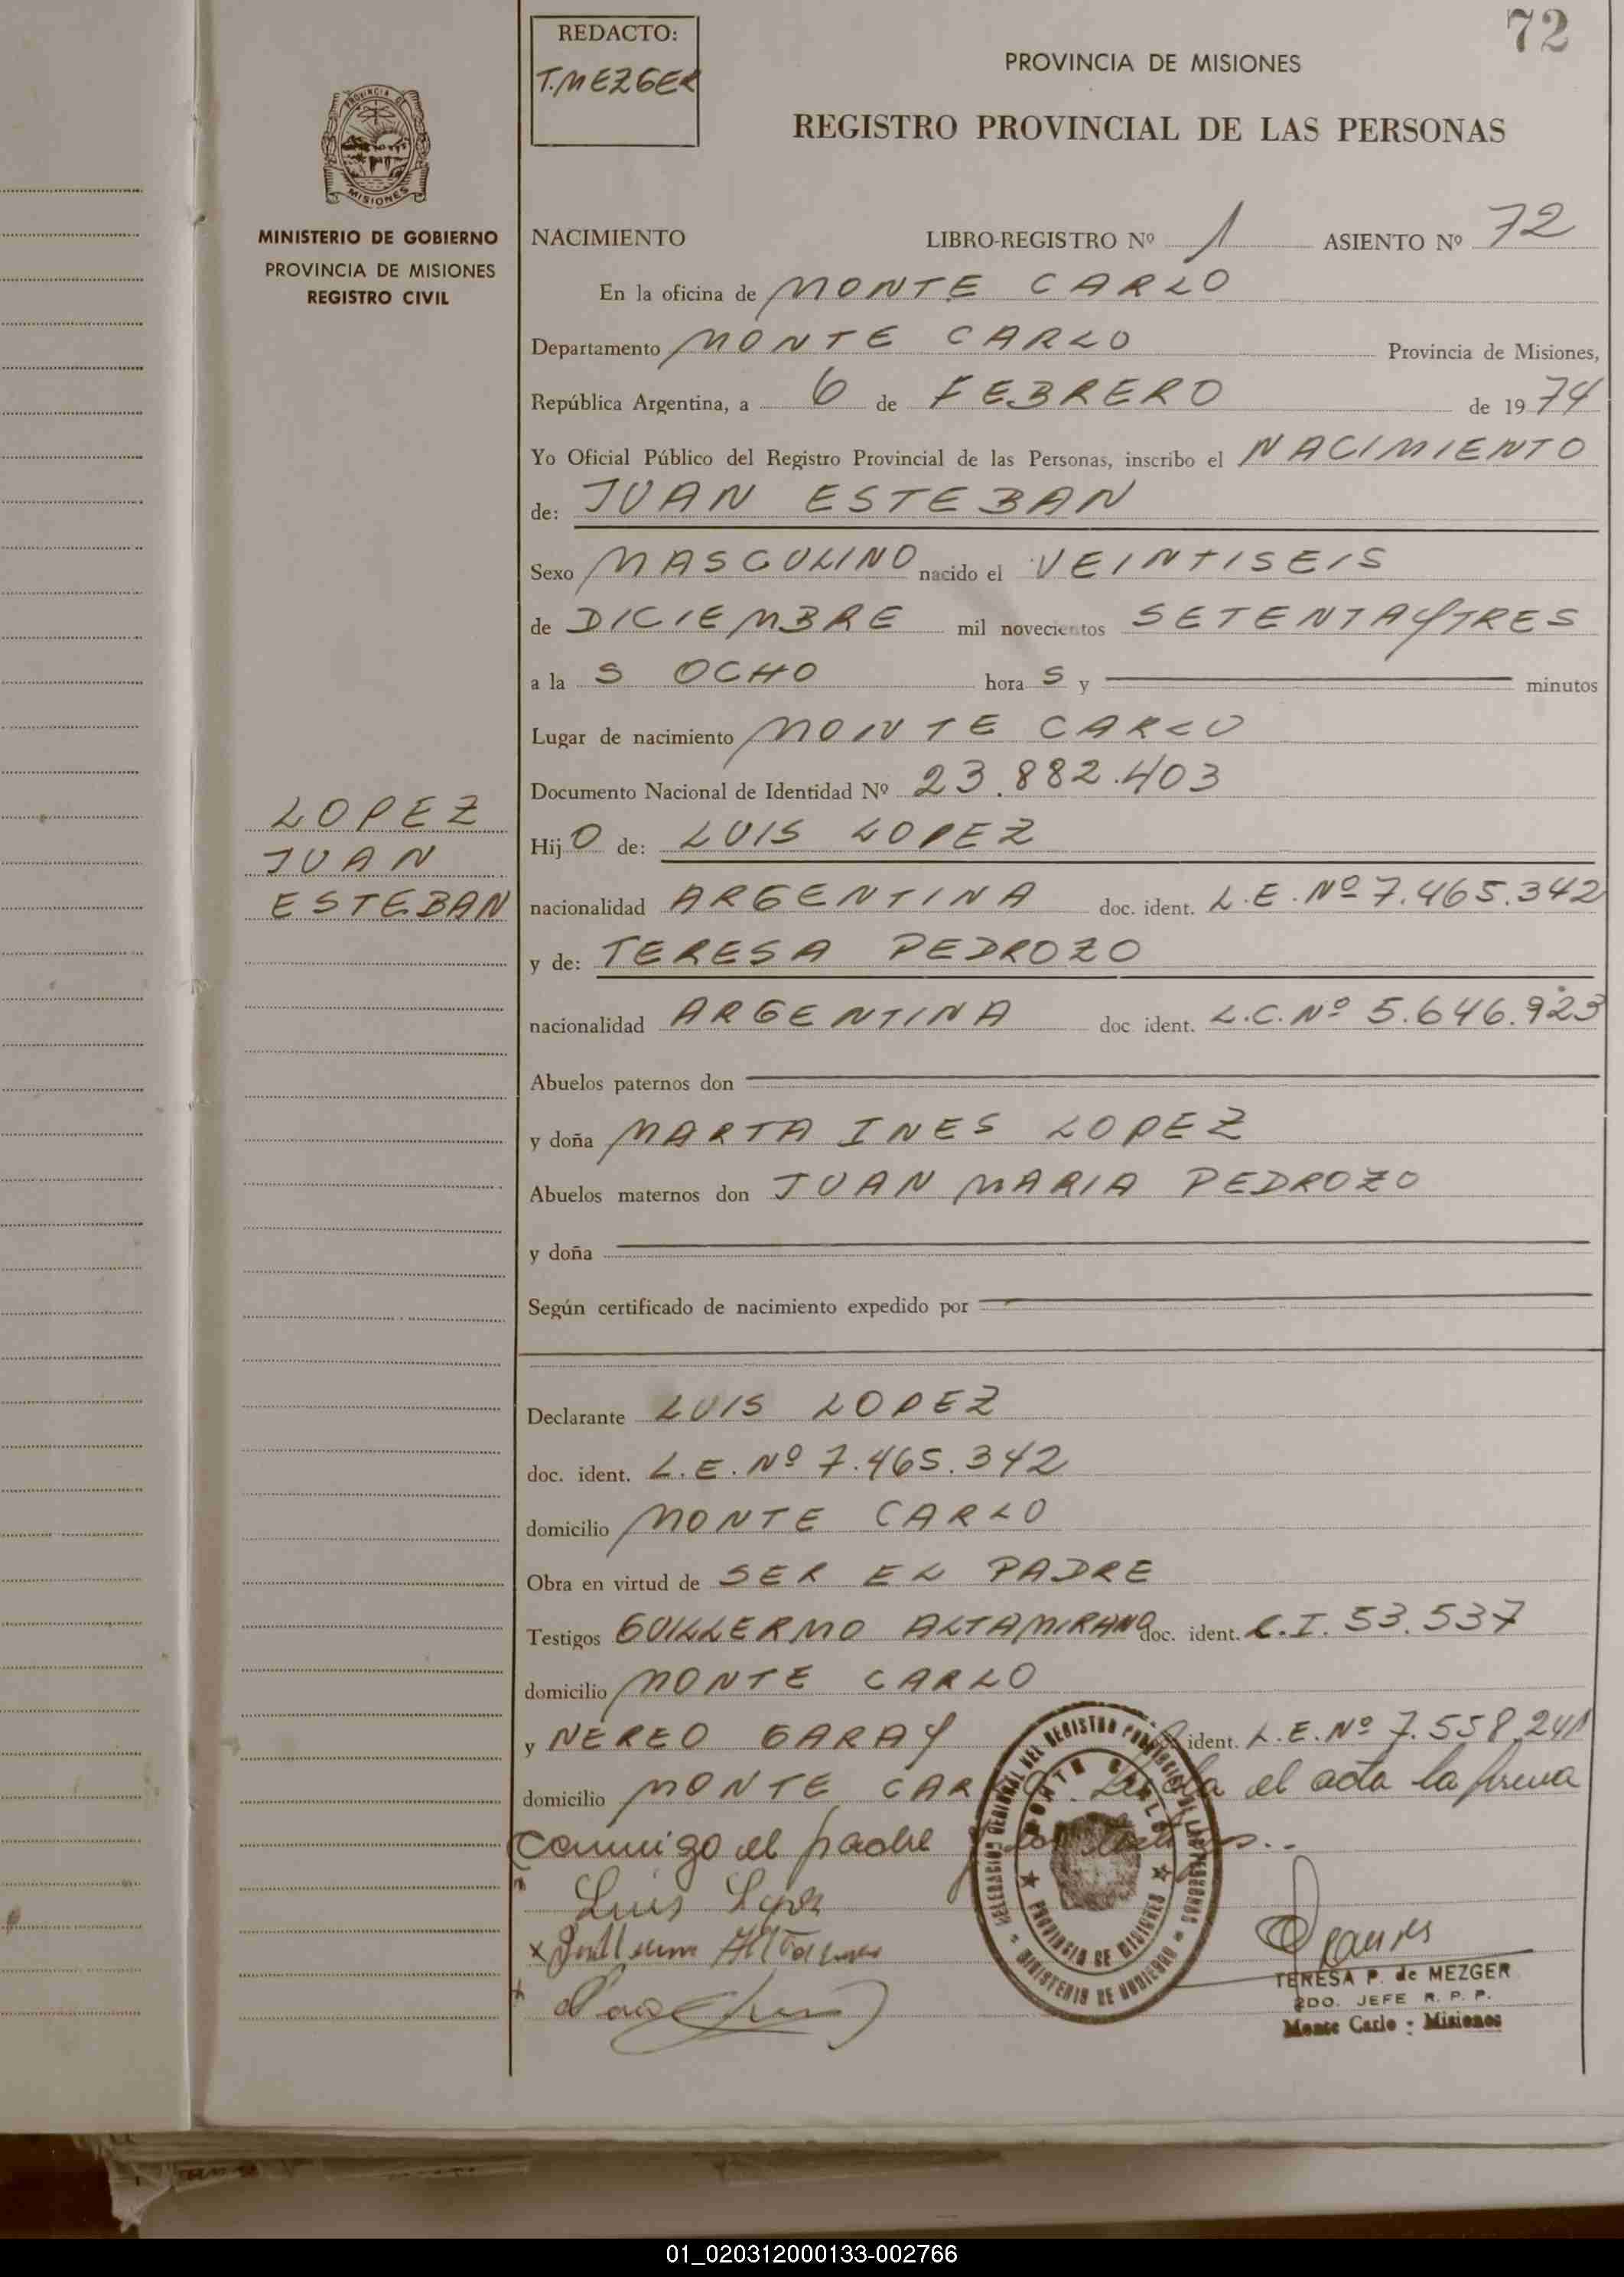 72
REDACTO:
T. MEZGER
PROVINCIA DE MISIONES
REGISTRO PROVINCIAL DE LAS PERSONAS
PROVINCIA DE
MISIONES
MINISTERIO DE GOBIERNO
PROVINCIA DE MISIONES
REGISTRO CIVIL
NACIMIENTO LIBRO-REGISTRO Nº 1 ASIENTO Nº 72
En la oficina de MONTE CARLO
Departamento MONTE CARLO Provincia de Misiones,
República Argentina, a 6 de FEBRERO de 1974
Yo Oficial Público del Registro Provincial de las Personas, inscribo el NACIMIENTO
de: JUAN ESTEBAN
Sexo MASCULINO nacido el VEINTISEIS
de DICIEMBRE mil novecientos SETENTA Y TRES
a la S OCHO hora S y minutos
Lugar de nacimiento MONTE CARLO
Documento Nacional de Identidad Nº 23.882.403
LOPEZ
JUAN
ESTEBAN
Hij O de: LUIS LOPEZ
nacionalidad ARGENTINA doc. ident. L.E. Nº 7.465.342
y de: TERESA PEDROZO
nacionalidad ARGENTINA doc ident. L.C. Nº 5.646.923
Abuelos paternos don
y doña MARTA INES LOPEZ
Abuelos maternos don JUAN MARIA PEDROZO
y doña
Según certificado de nacimiento expedido por
Declarante LUIS LOPEZ
doc. ident. L.E. Nº 7.465.342
domicilio MONTE CARLO
Obra en virtud de SER EL PADRE
Testigos GUILLERMO ALTAMIRANO doc. ident. C.I. 53.537
domicilio MONTE CARLO
y NEREO GARAY ident. L.E. Nº 7.558.241
domicilio MONTE CARLO. Leida el acta la firma
conmigo el padre y los testigos..
Luis Lopez
x Guillermo Altamirano
DELEGACION REGIONAL DEL REGISTRO PROVINCIAL DE LAS PERSONAS
MINISTERIO DE GOBIERNO
MONTE CARLO
PROVINCIA DE MISIONES
TERESA P. de MEZGER
2DO. JEFE R. P. P.
Monte Carlo - Misiones
01_020312000133-002766